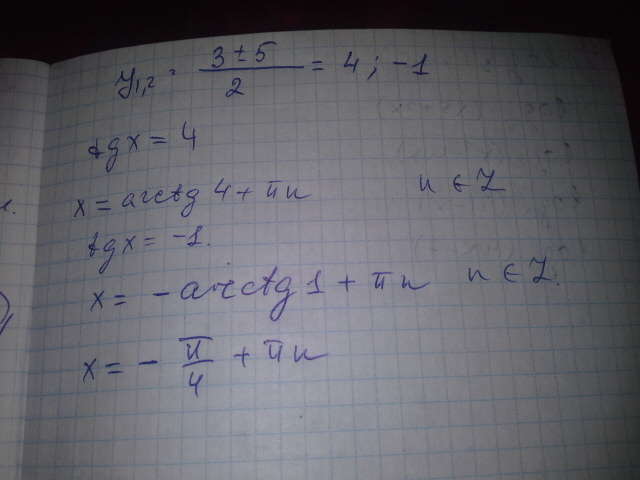 y₁,₂ = (3 ± 5)/2 = 4 ; -1
tg x = 4
x = arctg 4 + πn n ∈ Z
tg x = -1.
x = - arctg 1 + πn n ∈ Z.
x = - π/4 + πn